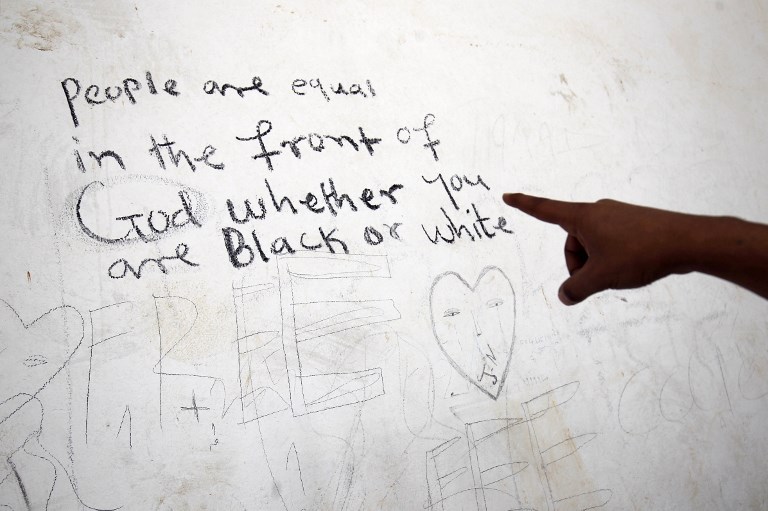 people are equal
in the front of
God whether you
are Black or white
FREE
J-N